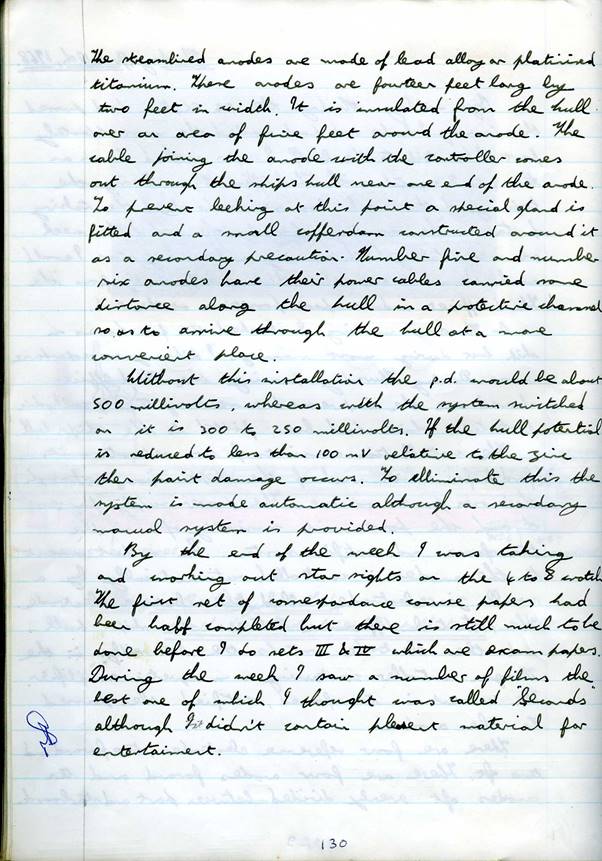 The streamlined anodes are made of lead alloy or platinised
titanium. These anodes are fourteen feet long by
two feet in width. It is insulated from the hull
over an area of five feet around the anode. The
cable joining the anode with the controller comes
out through the ships hull near one end of the anode.
To prevent leeking at this point a special gland is
fitted and a small cofferdam constructed around it
as a secondary precaution. Number five and number
six anodes have their power cables carried some
distance along the hull in a protective channel
so as to arrive through the hull at a more
convenient place.
Without this installation the p.d. would be about
500 millivolts, whereas with the system switched
on it is 200 to 250 millivolts. If the hull potential
is reduced to less than 100 mV relative to the zinc
then paint damage occurs. To elliminate this the
system is made automatic although a secondary
manual system is provided.
By the end of the week I was taking
and working out star sights on the 4 to 8 watch.
The first set of correspondance course papers had
been half completed but there is still much to be
done before I do sets III & IV which are exam papers.
During the week I saw a number of films the
best one of which I thought was called "Seconds"
although it didn't contain plesent material for
entertainment.
130